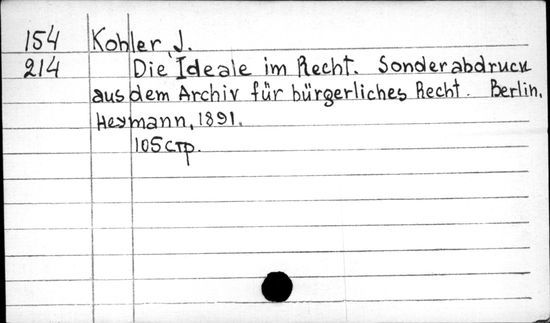 154 Kohler, J.
214 Die Ideale im Recht. Sonderabdruck
aus dem Archiv für bürgerliches Recht. Berlin.
Heymann, 1891.
105 стр.